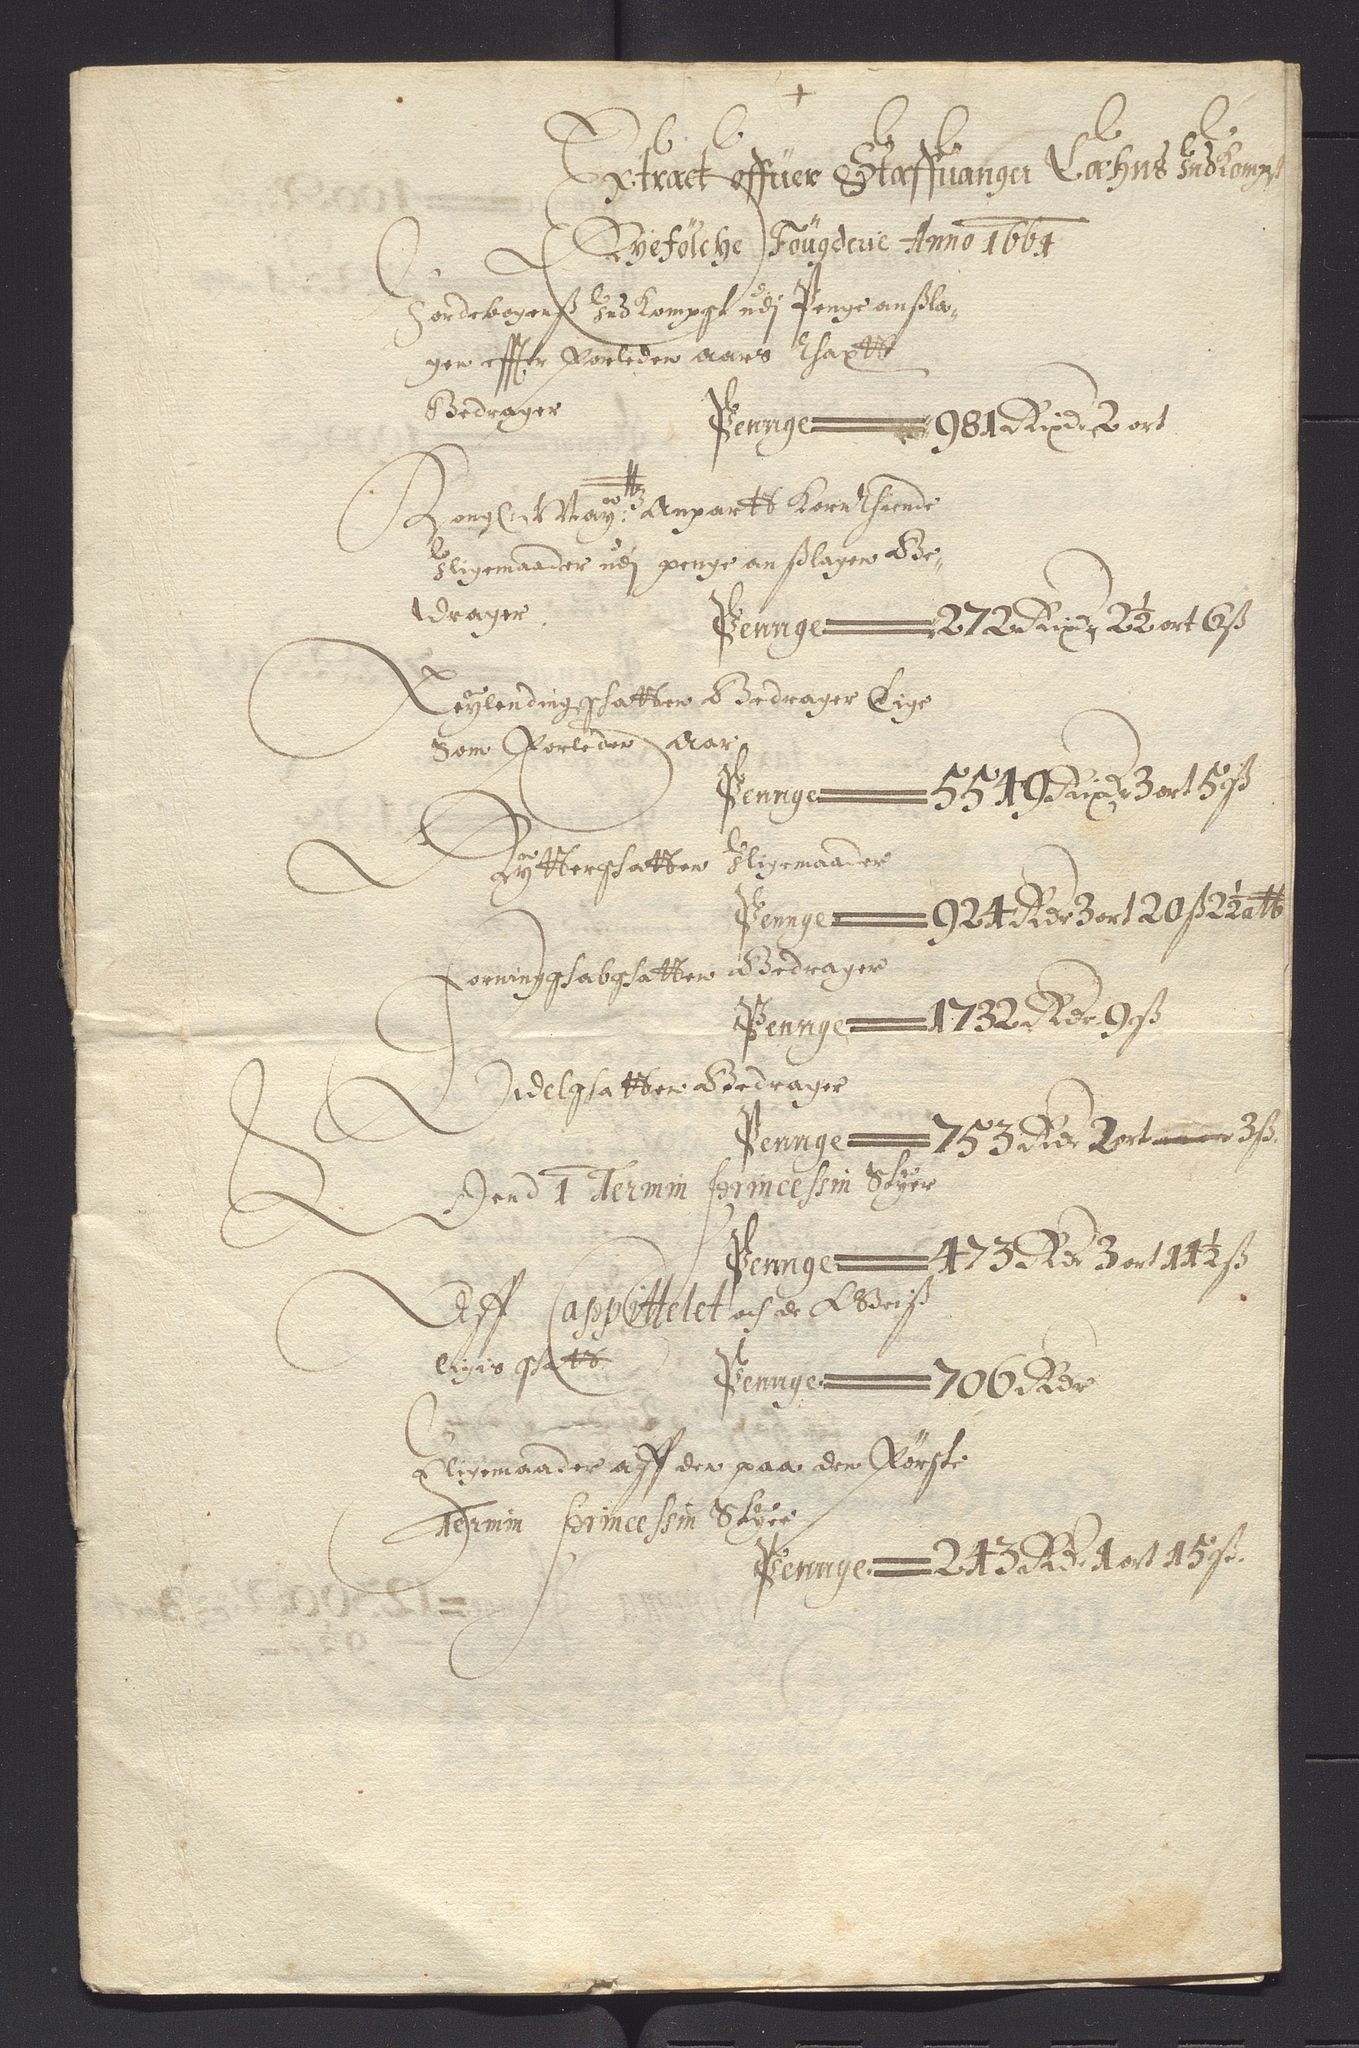 Extract offuer Staffuanger Læhns Indkompst
Ryefölche Fougderie Anno 1661
Jordebogens Indkompst udj Penge anszla-
gen effter Forleden aars Thaxtt
Bedrager Pennge 981 Rixdr 2 ort
Kong: Maytz: Anpartt Korn Thiende
Iligemaader udj penge anszlagen Be-
drager. Pennge 272 Rixdr 2½ ort 6 ß
Leylendingschatten Bedrager Lige
Som Forleden Aar
Pennge 5549 Rixdr 3 ort 5 ß
Rytterschatten Iligemaader
Pennge 924 Rdr 3 ort 20 ß 2½ alb
Forningschabschatten Bedrager
Pennge 1732 Rdr 9 ß
Odelschatten Bedrager
Pennge 753 Rdr 2 ort 3 ß.
Dend 1 Termin Princessin Styer
Pennge 473 Rdr 3 ort 11½ ß
Aff Cappittelet och de Geist
ligis schatt
Pennge 706 Rdr
Iligemaader aff den paa den Förste
Termin Princessin Styer
Pennge 243 Rdr 1 ort 15 ß.